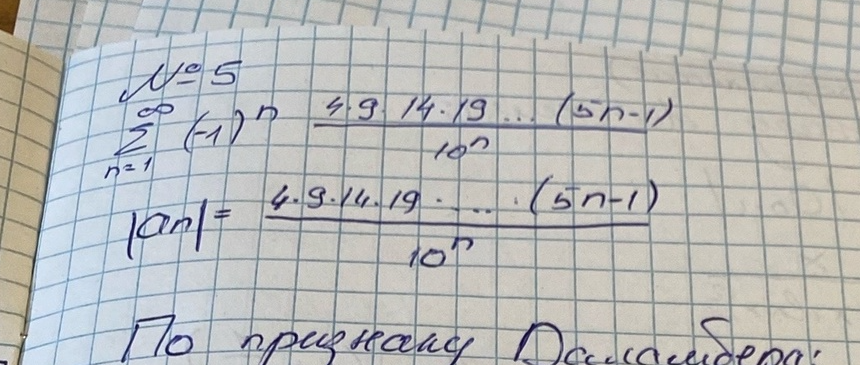 № 5
∞
∑ (-1)ⁿ 4·9·14·19... (5n-1)
n=1 10ⁿ
|an| = 4·9·14·19· ... ·(5n-1)
10ⁿ
По признаку Даламбера: